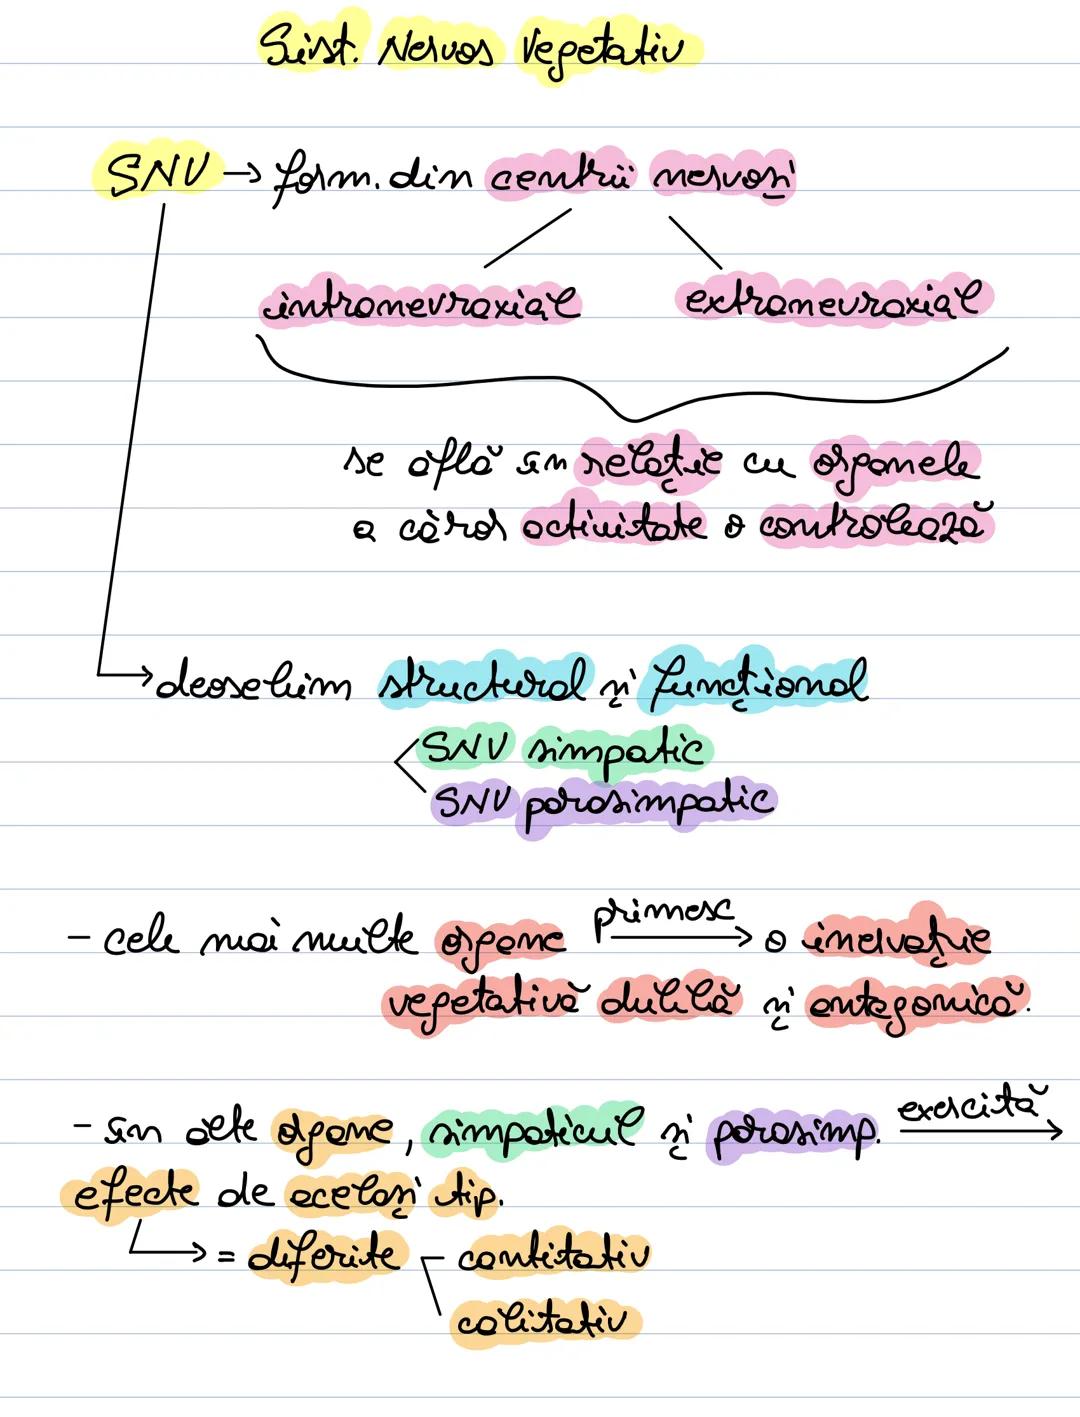 Sist. Nervos Vegetativ
SNV → form. din centrii nervoși
intranevraxial extranevraxial
se află în relație cu organele
a căror activitate o controlează
→ deosebim structural și funcțional
SNV simpatic
SNV parasimpatic
- cele mai multe organe primesc → o inervație
vegetativă dublă și antagonică.
- în alte organe, simpaticul și parasimp. exercită →
efecte de același tip.
→ = diferite cantitativ
calitativ